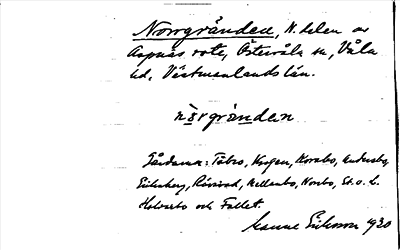 Norrgränden, N. delen av
Aspnäs rote, Östervåla sn, Våla
hd, Västmanlands län.
nòrgrändęn
Gårdarna: Täbro, Krogen, Korsbo, Andersbo,
Eriksberg, Hellenbo, Norsbo, St. o. L.
Holvarbo och Fallet.
Manne Eriksson 1930